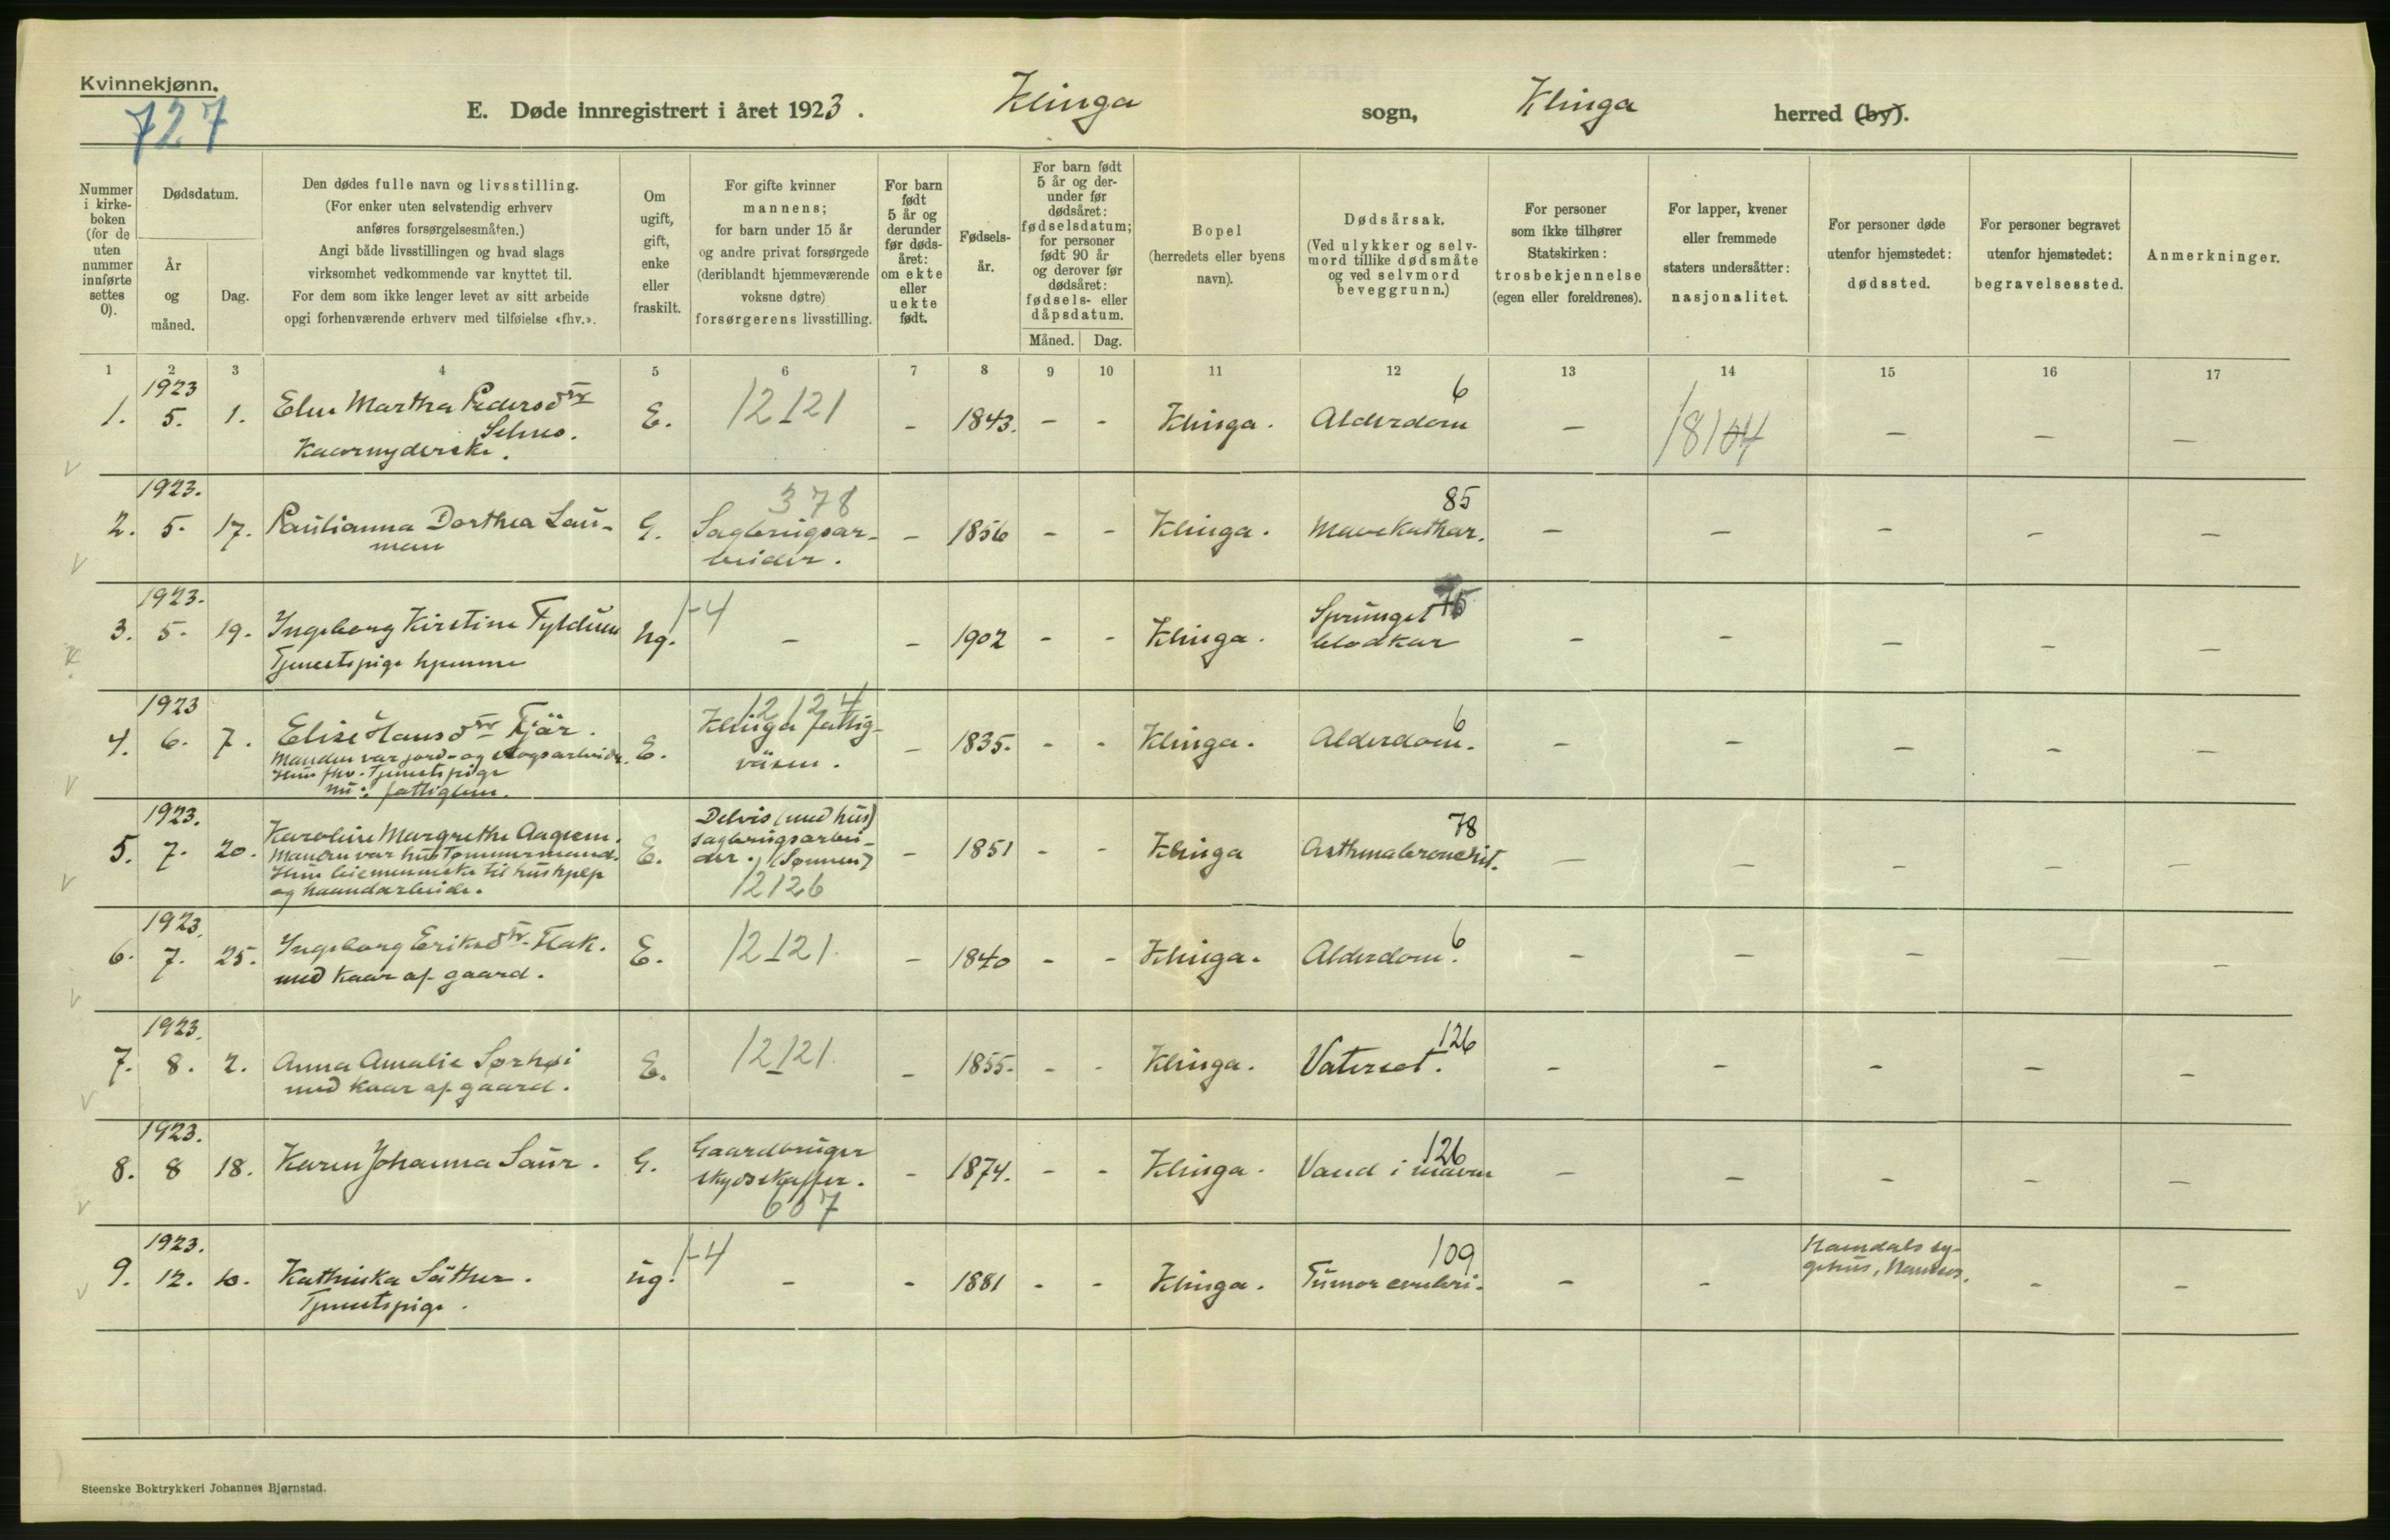 Kvinnekjønn.
727
E. Døde innregistrert i året 1923. Klinga sogn, Klinga herred (by).
Nummer i kirke-boken (for de uten nummer innførte settes 0).
Dødsdatum.
År og måned.
Dag.
Den dødes fulle navn og livsstilling.
(For enker uten selvstendig erhverv
anføres forsørgelsesmåten.)
Angi både livsstillingen og hvad slags
virksomhet vedkommende var knyttet til.
For dem som ikke lenger levet av sitt arbeide
opgi forhenværende erhverv med tilføielse «fhv.».
Om ugift, gift, enke eller fraskilt.
For gifte kvinner
mannens;
for barn under 15 år
og andre privat forsørgede
(deriblandt hjemmeværende
voksne døtre)
forsørgerens livsstilling.
For barn født 5 år og derunder før døds-året: om ekte eller uekte født.
Fødsels-år.
For barn født 5 år og der-under før dødsåret: fødselsdatum; for personer født 90 år og derover før dødsåret: fødsels- eller dåpsdatum.
Måned. Dag.
Bopel
(herredets eller byens
navn).
Dødsårsak.
(Ved ulykker og selv-
mord tillike dødsmåte
og ved selvmord
beveggrunn.)
For personer
som ikke tilhører
Statskirken:
trosbekjennelse
(egen eller foreldrenes).
For lapper, kvener
eller fremmede
staters undersåtter:
nasjonalitet.
For personer døde
utenfor hjemstedet:
dødssted.
For personer begravet
utenfor hjemstedet:
begravelsessted.
Anmerkninger.
1 2 3 4 5 6 7 8 9 10 11 12 13 14 15 16 17
1923 6
1. 5. 1. Elen Martha Pedersdtr E. 12121 - 1843. - - Klinga. Alderdom - 18104 - - -
Selnes.
Kaarnyderske.
1923. 378 85
2. 5. 17. Paulianna Dorthea Lau- G. Sagbrugsar- - 1856 - - Klinga. Mavekathar. - - - - -
man beider.
1923. 1-4 Sprunget
3. 5. 19. Ingeborg Kirstine Fyldum Ug. - - 1902 - - Klinga. blodkar - - - - -
Tjenestpige hjemme
1923 12124 6
4. 6. 7. Elise Hansdtr Tjär. E. Klinga fattig- - 1835. - - Klinga. Alderdom. - - - - -
Manden var jord- og skogsarbeider. väsen.
Hun fhv. Tjenestpige
nu: fattiglem.
1923. Delvis (med hus) 78
5. 7. 20. Karoline Margrethe Aagsem. E. sagbrugsarbei- - 1851 - - Klinga Asthmabronchit. - - - - -
Manden var hustømmermand. der. (Sønnen)
Hun leiemenneske til hushjelp 12126
og haandarbeide.
1923. 6
6. 7. 25. Ingeborg Eriksdtr. Flak. E. 12121. - 1840 - - Klinga. Alderdom. - - - - -
med kaar af gaard.
1923. 126
7. 8. 2. Anna Amalie Sørhøi E. 12121. - 1855. - - Klinga. Vatersot. - - - - -
med kaar af gaard.
1923. Gaardbruger 126
8. 8 18. Karen Johanna Saur. G. skydsskaffer. - 1874. - - Klinga. Vand i maven - - - - -
607
1923. 1-4 109 Namdals sy-
9. 12. 10. Kathinka Säther. ug. - - 1881 - - Klinga. Tumor cerebri. - - gehus, Namsos. - -
Tjenestpige.
Steenske Boktrykkeri Johannes Bjørnstad.